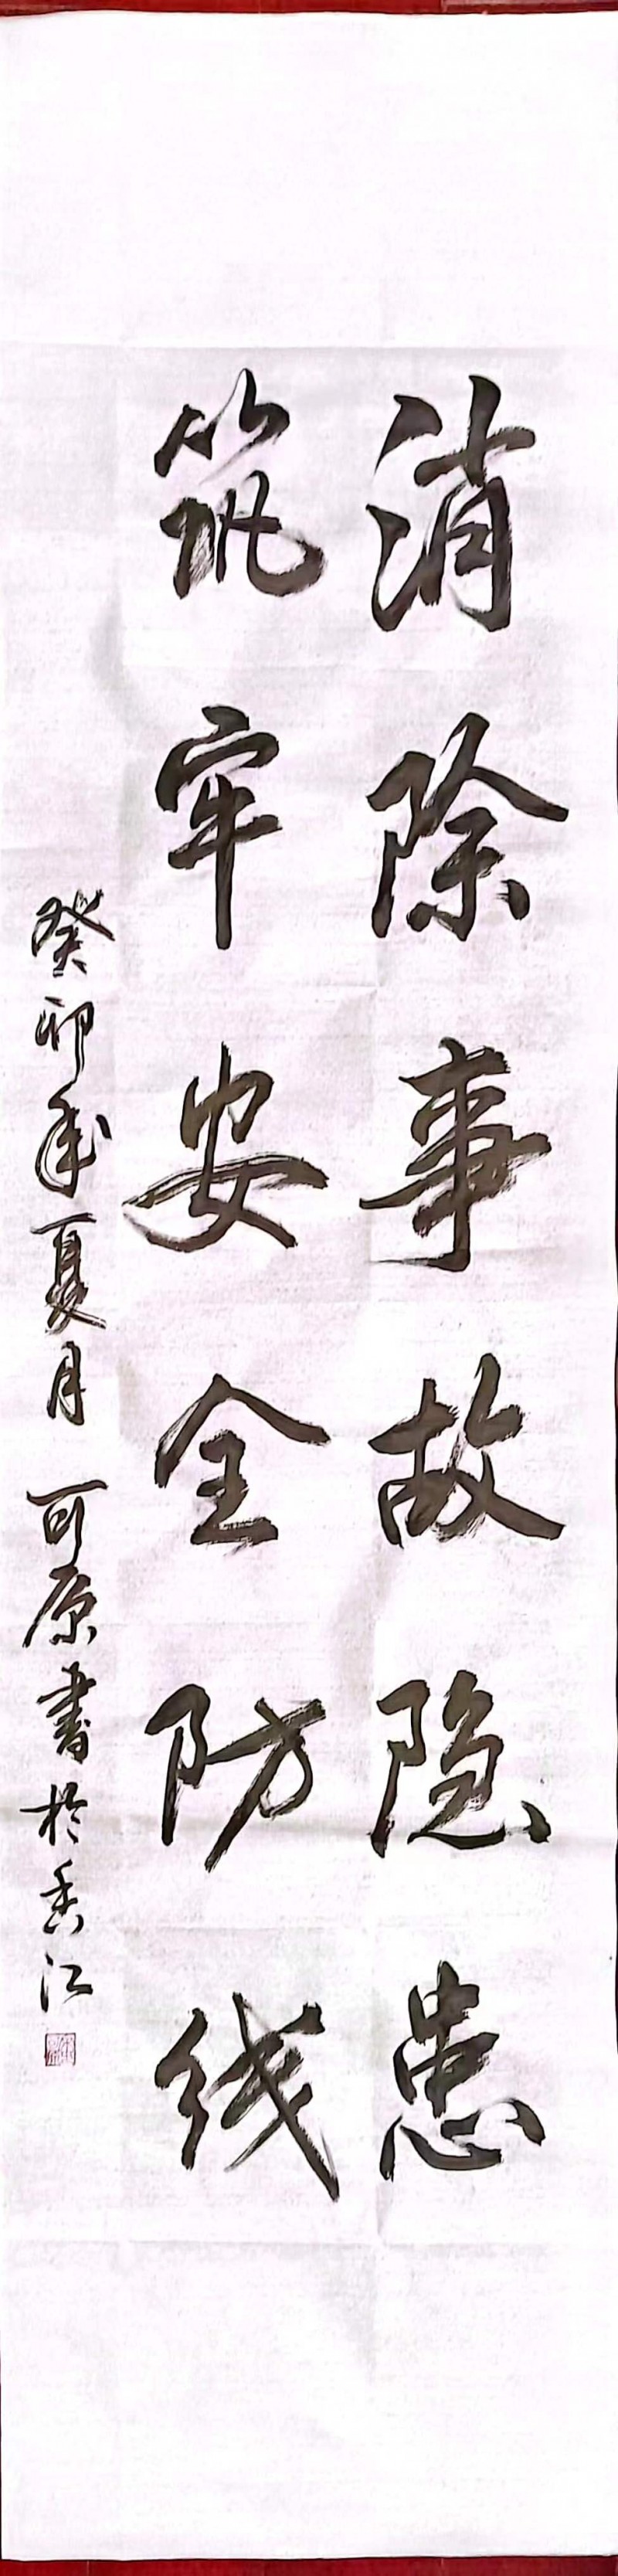 消除事故隐患
筑牢安全防线
癸卯年夏月 可原书於香江